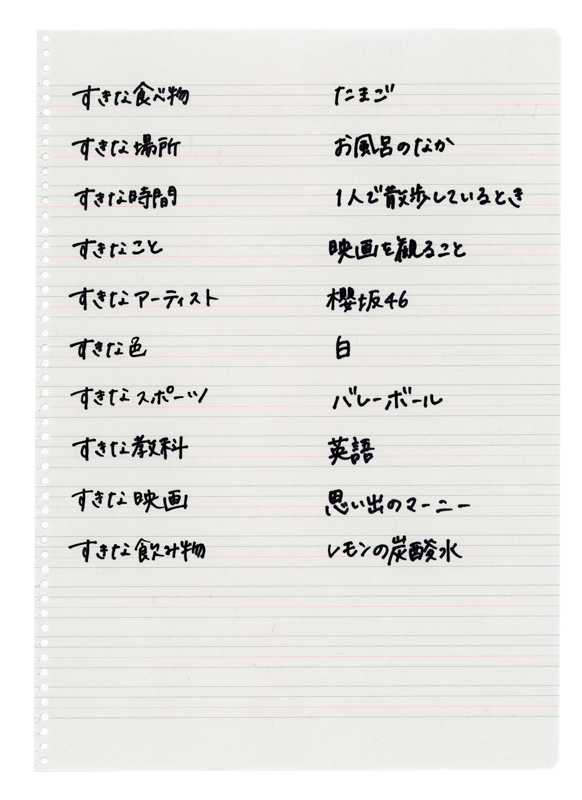 すきな食べ物 たまご
すきな場所 お風呂のなか
すきな時間 1人で散歩しているとき
すきなこと 映画を観ること
すきなアーティスト 櫻坂46
すきな色 白
すきなスポーツ バレーボール
すきな教科 英語
すきな映画 思い出のマーニー
すきな飲み物 レモンの炭酸水